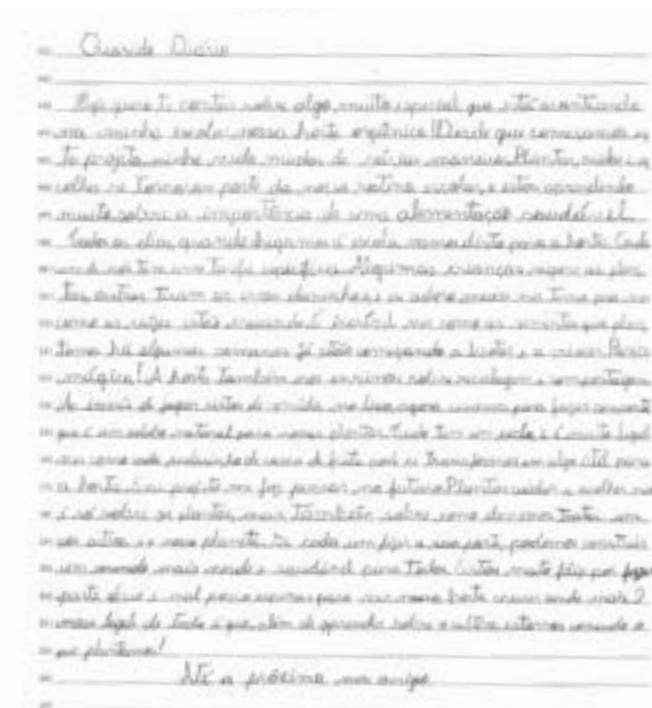 Querido Diário
Hoje quero te contar sobre algo muito especial que está acontecendo
na minha escola: nossa horta orgânica! Desde que começamos es
te projeto, minha vida mudou de várias maneiras. Plantar, cuidar e
colher se tornaram parte da nossa rotina escolar, e estou aprendendo
muito sobre a importância de uma alimentação saudável.
Todos os dias, quando chegamos à escola, vamos direto para a horta. Cada
um de nós tem uma tarefa específica. Algumas crianças regam as plan
tas, outras tiram as ervas daninhas, e eu adoro mexer na terra para ver
como as raízes estão crescendo. É incrível ver como as sementes que plan
tamos há algumas semanas já estão começando a brotar e a crescer. Parece
mágica! A horta também nos ensinou sobre reciclagem e compostagem
Ao invés de jogar restos de comida no lixo, agora usamos para fazer composto
que é um adubo natural para nossas plantas. Tudo tem um ciclo, e é muito legal
ver como cada de casca de fruta pode se transformar em algo útil para
a horta. Esse projeto me faz pensar no futuro. Plantar, cuidar e colher não
é só sobre as plantas, mas também sobre como devemos tratar uns
aos outros e o nosso planeta. Se cada um fizer a sua parte, podemos construir
um mundo mais verde e saudável para todos. Estou muito feliz por fazer
parte disso e mal posso esperar para ver nossa horta crescer ainda mais. O
mais legal de tudo é que, além de aprender sobre o cultivo, estamos comendo o
que plantamos!
Até a próxima meu amigo